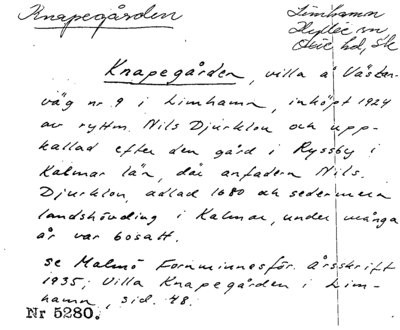 Knapegården
Limhamn
Hyllie sn
Oxie hd, Sk
Knapegården, villa å Väster-
väg nr 9 i Limhamn, inköpt 1924
av ryttm. Nils Djurklou och upp-
kallad efter den gård i Ryssby i
Kalmar län, där anfadern Nils
Djurklou, adlad 1680 och sedermera
landshövding i Kalmar, under många
år var bosatt.
se Malmö Fornminnesför. årsskrift
1935; Villa Knapegården i Lim-
hamn, sid. 48.
Nr 5280.